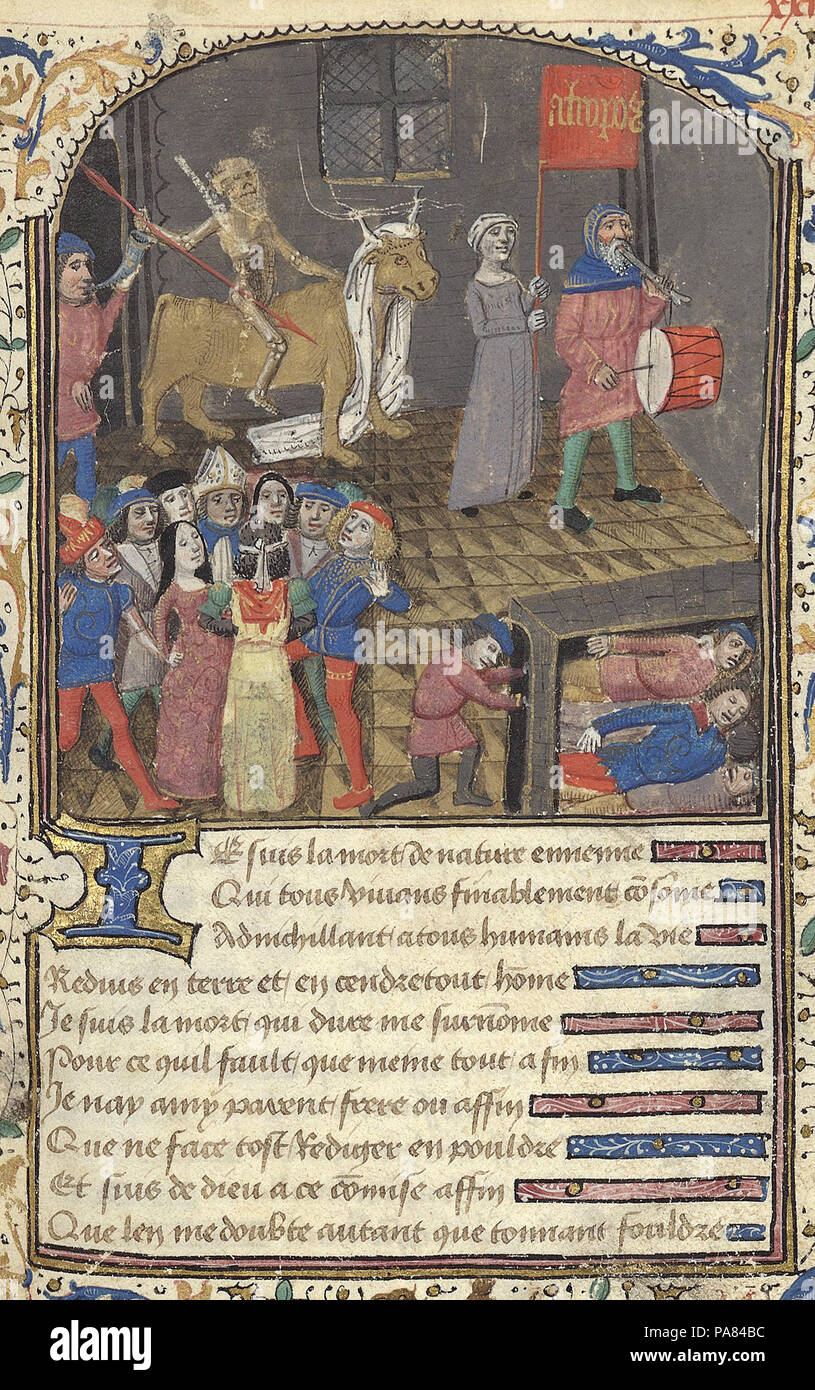 XXI
atropos
IE suis la mort de nature ennemie
Qui tous vivans finablement cõsõme
Adnichillant a tous humains la vie
Reduis en terre et en cendre tout hõme
Je suis la mort qui dure me surnõme
Pour ce quil fault que meine tout a fin
Je nay amy parent frere ou affin
Que ne face tost Rediger en pouldre
Et suis de dieu a ce cõmise affin
Que len me doubte autant que tonnant fouldre
alamy
alamy
Image ID: PA84BC
www.alamy.com